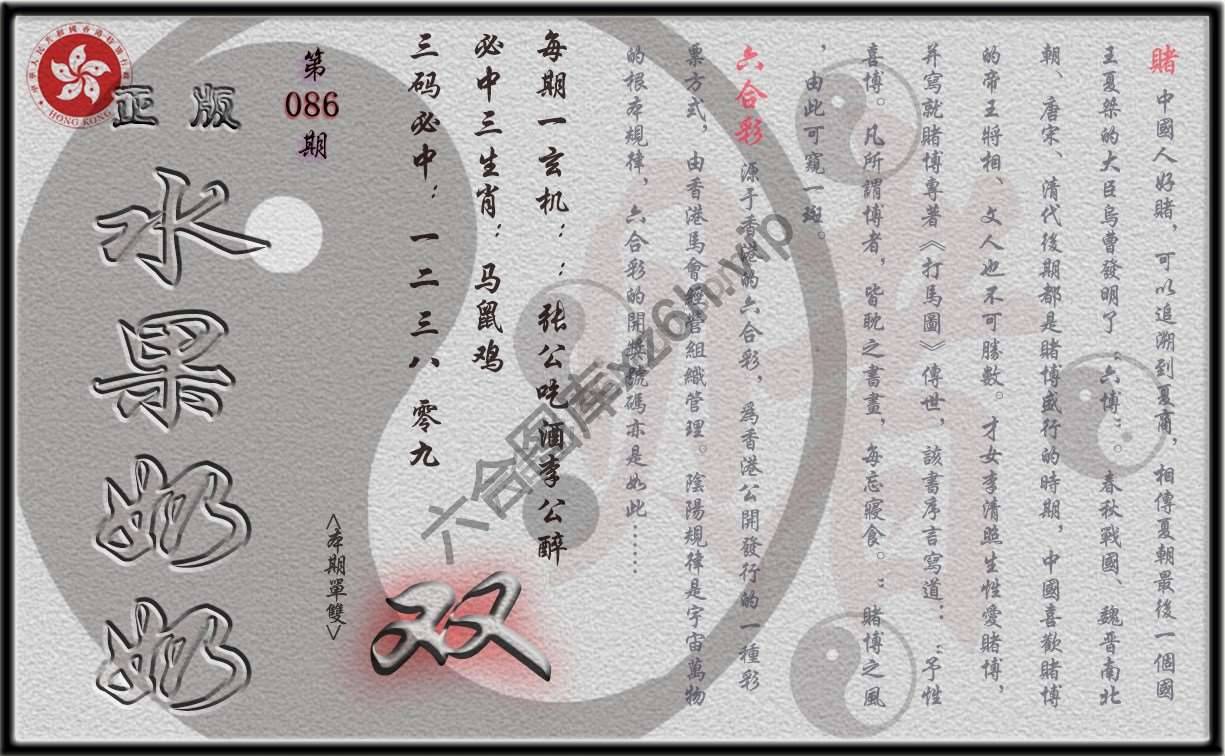 賭 中國人好賭，可以追溯到夏商，相傳夏朝最後一個國
王夏桀的大臣烏曹發明了“六博”。春秋戰國、魏晉南北
朝、唐宋、清代後期都是賭博盛行的時期，中國喜歡賭博
的帝王將相、文人也不可勝數。才女李清照生性愛賭博，
并寫就賭博專著《打馬圖》傳世，該書序言寫道：“予性
喜博。凡所謂博者，皆眈之書畫，每忘寢食。”賭博之風
，由此可窺一斑。
六合彩 源于香港的六合彩，為香港公開發行的一種彩
票方式，由香港馬會經營組織管理。陰陽規律是宇宙萬物
的根本規律，六合彩的開獎號碼亦是如此……
每期一玄机：：张公吃酒李公醉
必中三生肖：马鼠鸡
三码必中：一二三八零九
第
086
期
<本期單雙>
双
正版
水果奶奶
HONG KONG
六合图库xz6h.vip